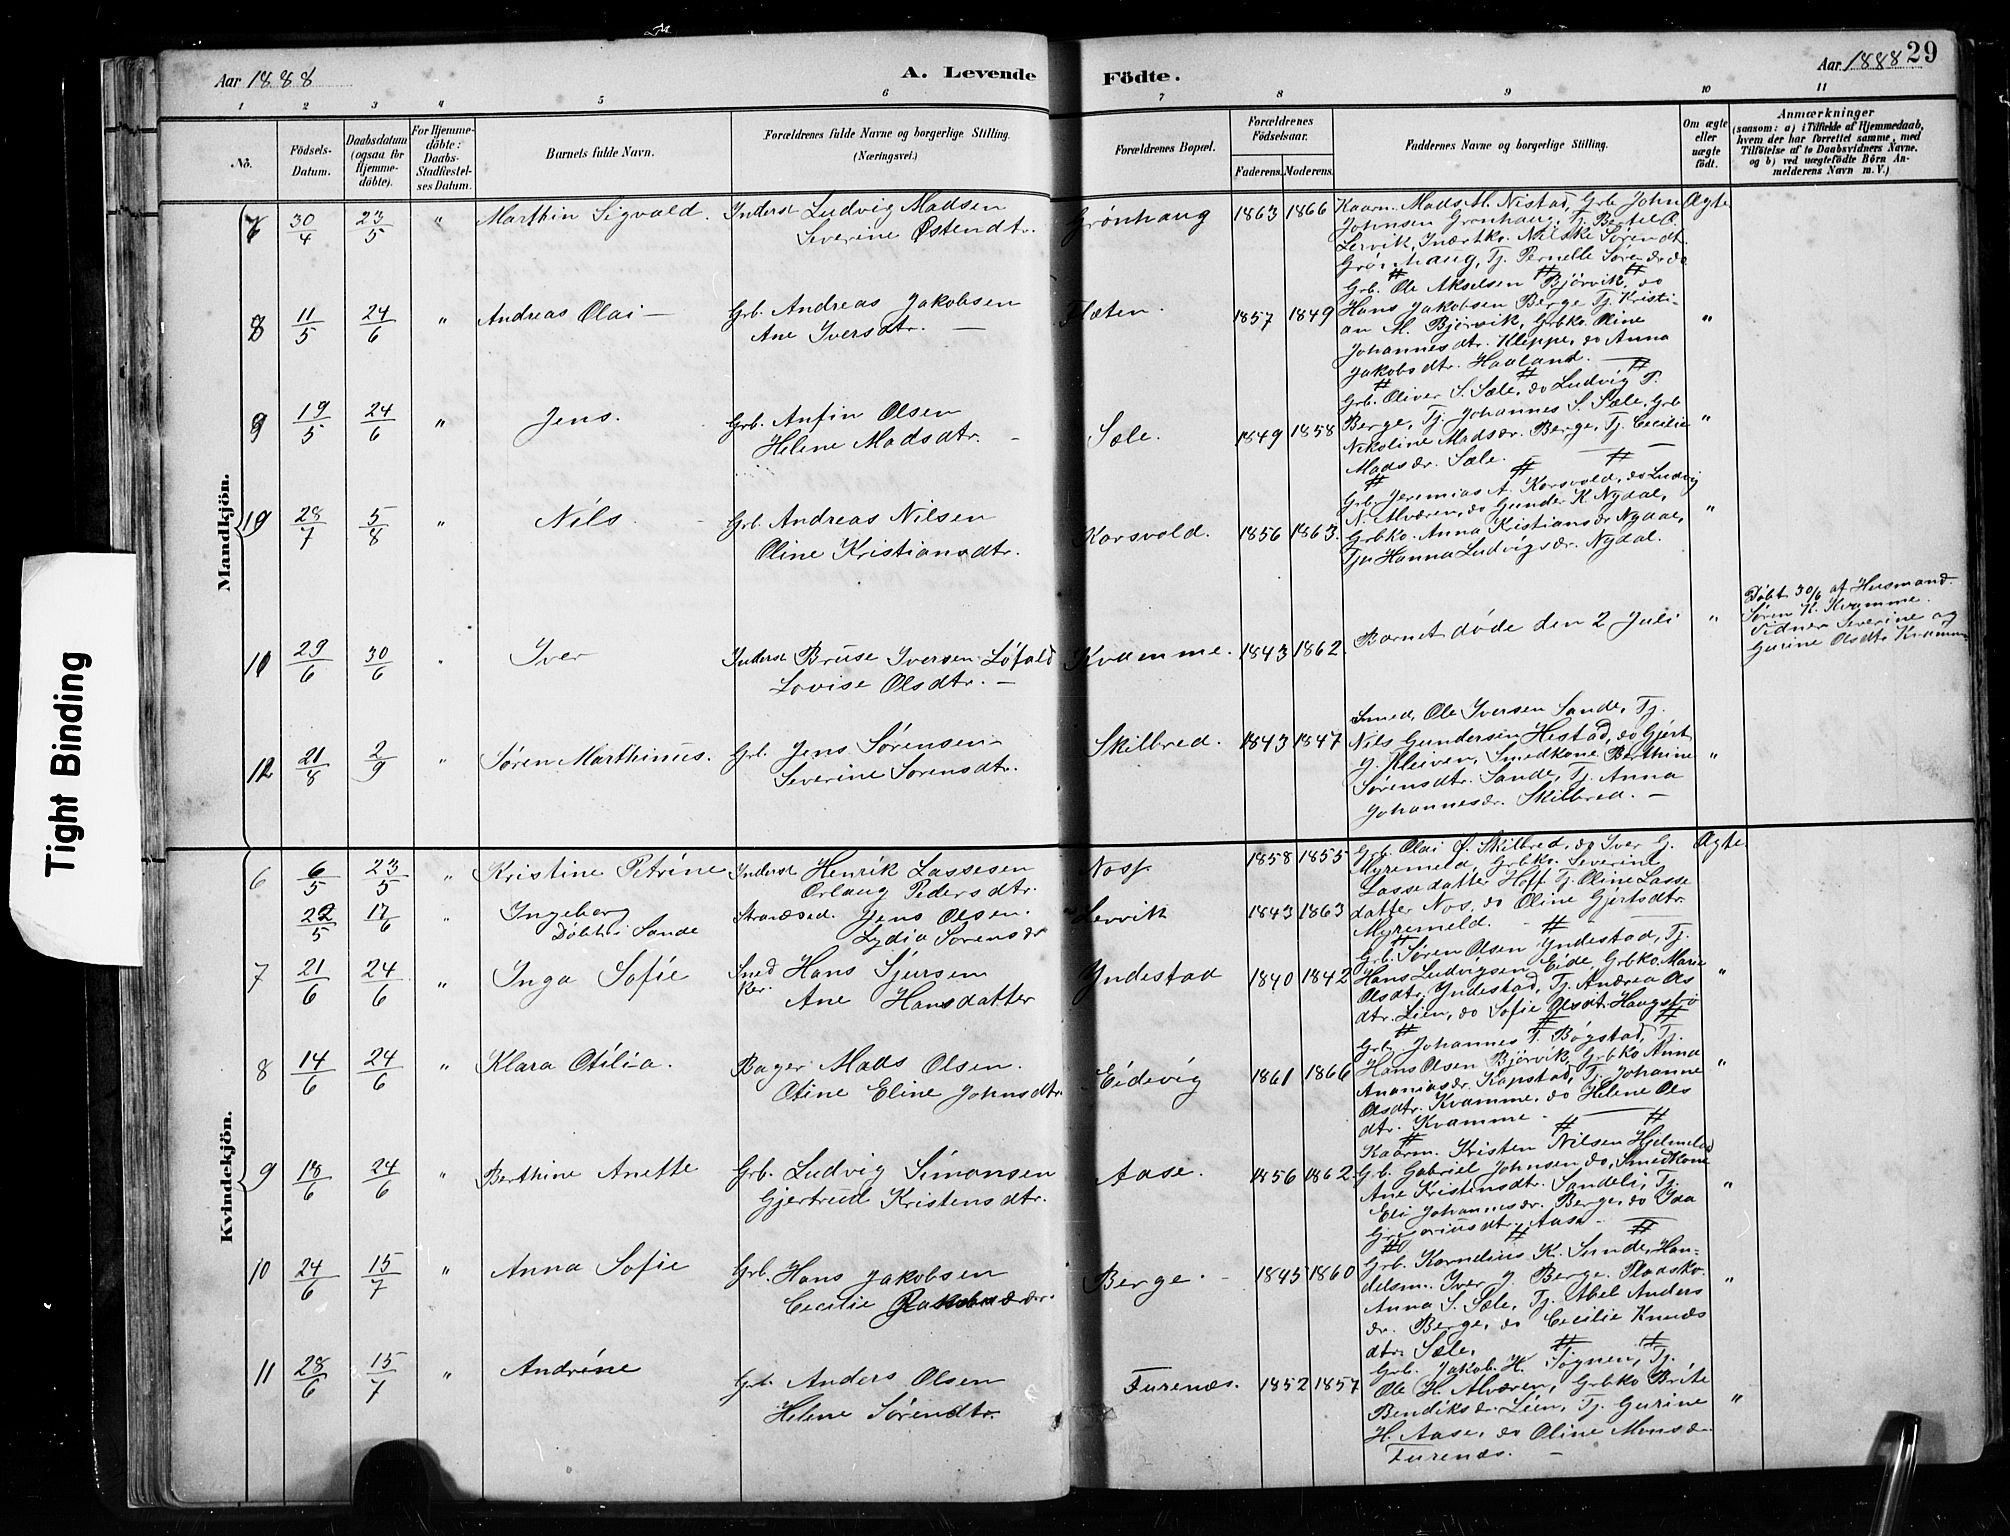 Aar 1888
A. Levende
Födte.
Aar 1888
29
1 2 3 4 5 6 7 8 9 10 11
No.
Födsels-
Datum.
Daabsdatum
(ogsaa for
Hjemme-
döbte).
For Hjemme-
döbte:
Daabs-
Stadfæstel-
ses Datum.
Barnets fulde Navn.
Forældrenes fulde Navne og borgerlige Stilling.
(Næringsvei.)
Forældrenes Bopæl.
Forældrenes
Födselsaar.
Faderens. Moderens.
Faddernes Navne og borgerlige Stilling.
Om ægte
eller
uægte
født.
Anmærkninger
(saasom: a) i Tilfælde af Hjemmedaab,
hvem der har forrettet samme, med
Tilföielse af to Daabsvidners Navne.
og b) ved uægtefödte Börn An-
melderens Navn m. V.)
Mandkjön.
7 30/4 23/5 " Marthin Sigvald. Inderst Ludvig Madsen
Severine Østendtr. Grønhaug 1863 1866 Ægte
Kaarm. Mads M. Nistad, Grb. John
Johnsen Grønhaug, Tj. Bertil O.
Lervik, Inderstko. Nilske Sørendt.
Grønhaug, Tj. Pernelle Sørendr do
8 11/5 24/6 " Andreas Olai — Grb. Andreas Jakobsen
Ane Iversdtr. — Flæten. 1857 1849 "
Grb. Ole Akselsen Bjørvik, do
Hans Jakobsen Berge, Tj. Kristi-
an M. Bjørvik, Grbko. Oline
Johannesdtr. Kleppe, do Anna
Jakobsdtr. Haaland.
9 19/5 24/6 " Jens. Grb. Anfin Olsen
Helene Madsdtr. — Sæle. 1849 1858 "
Grb. Oliver S. Sæle, do Ludvig T.
Berge, Tj. Johannes S. Sæle, Grb
Nikoline Madsdr. Berge, Tj. Cecilie
Madsdr. Sæle.
10 28/7 5/8 " Nils. Grb. Andreas Nilsen
Oline Kristiansdtr. Korsvold. 1856 1863. "
Grb. Jeremias A. Korsvold, do Ludvig
N. Alværen, do Gunder K. Nydal,
Grbko. Anna Kristiansdr Nydal,
Tj. Hanna Ludvigsdr. Nydal.
11 29/6 30/6 " Iver Inderst Bruse Iversen Løfald
Lovise Olsdtr. — Kvamme. 1843 1862 Barnet døde den 2 Juli "
Døbt 30/6 af Husmand
Søren K. Kvamme.
Vidner Severine og
Gurine Olsdtr Kvamme
12 21/8 2/9 " Søren Marthinus. Grb. Jens Sørensen
Severine Sørensdtr. Skilbred. 1843 1847 "
Smed, Ole Iversen Sande, Tj.
Nils Gundersen Hestad, do Gjert
J. Kleiven, Smedkone Berthine
Sørensdtr. Sande, Tj. Anna
Johannesdr. Skilbred. —
Kvindekjön.
6 6/5 23/5 " Kristine Petrine Inderst Henrik Lassesen
Orlaug Pedersdtr. Nos. 1858 1855 Ægte
Grb. Olai O. Skilbred, do Iver G.
Myremeld, Grbko. Severine
Lassedatter Hoff, Tj. Oline Lasse
datter Nos, do Oline Gjertsdtr.
Myremeld.
22/5 17/6 " Ingeborg
Døbt i Sande Strandsid. Jens Olsen.
Lydia Sørensdr Lervik 1843 1863
7 21/6 24/6 " Inga Sofie Sned
ker. Hans Sjursen
Ane Hansdatter Yndestad 1840 1842 "
Grb. Søren Olsen Yndestad, Tj.
Hans Ludvigsen Eide, Grbko. Marie
Olsdtr. Yndestad, Tj. Andrea Ols
dtr. Lien, do Sofie Olsdtr.
8 14/6 24/6 " Klara Otilia. Bager Mads Olsen.
Otine Eline Johnsdtr. Eidevig 1861 1866 "
Grb. Johannes T. Bøgstad, Tj.
Hans Olsen Bjørvik, Grbko Anna
Ananiasdr. Kapstad, Tj. Johanne
Olsdtr. Kvamme, do Helene Ols
dtr. Kvamme —
9 18/6 24/6 " Berthine Anette Grb. Ludvig Simonsen
Gjertrud Kristensdtr. Aase. 1856 1862. "
Kaarm. Kristen Nilsen Hjelmeland
Grb. Gabriel Johnsen do, Smedkone
Ane Kristensdtr. Sandeli, Tj.
Eli Johannesdr. Berge, do Ida
Gregoriusdtr. Aase
10 24/6 15/7 " Anna Sofie Grb. Hans Jakobsen
Cecilie Berge. 1845 1860 "
Grb. Kornelius K. Sunde, Han-
delsm. Iver J. Berge. Pladsko.
Anna S. Sæle, Tj. Abel Anders
dr. Berge, do Cecilie Knuds
dtr. Sæle.
11 28/6 15/7 " Andrine Grb. Anders Olsen
Helene Sørendtr. Furenes. 1852 1857 "
Grb. Jakob H. Sognen, Tj.
Ole H. Alværen, Grbko Brite
Bendiksdr. Lien, Tj. Gurine
H. Aase, do Oline Monsdr.
Furenes. —
Tight Binding